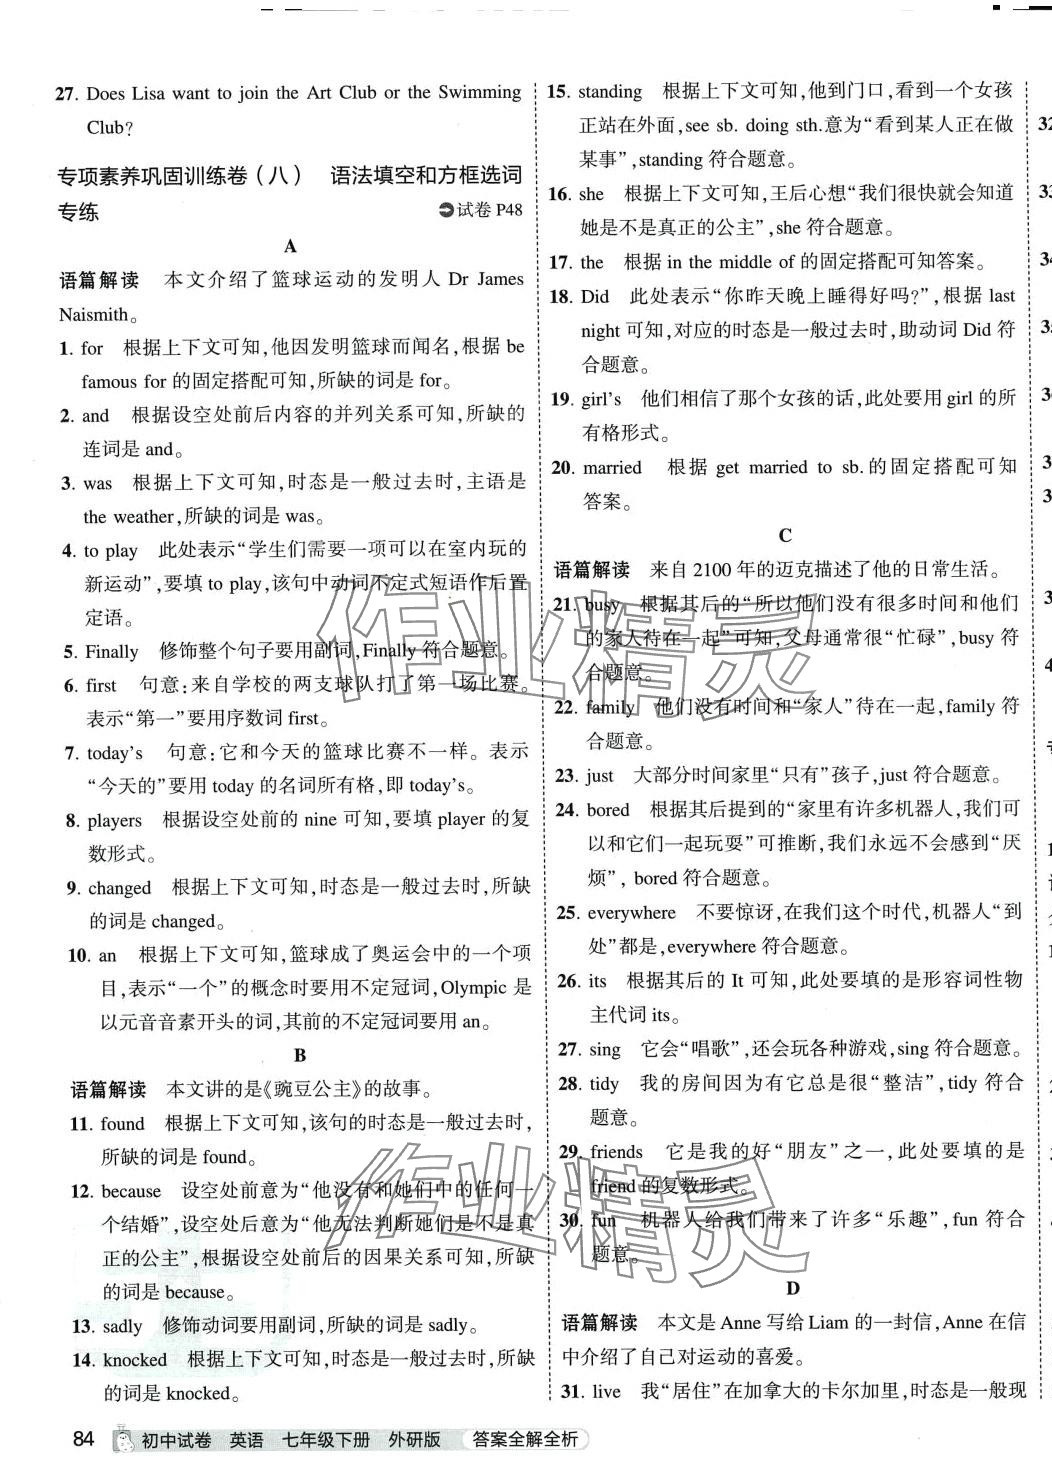 27. Does Lisa want to join the Art Club or the Swimming
Club?
专项素养巩固训练卷(八) 语法填空和方框选词
专练 试卷 P48
A
语篇解读 本文介绍了篮球运动的发明人 Dr James
Naismith。
1. for 根据上下文可知,他因发明篮球而闻名,根据 be
famous for 的固定搭配可知,所缺的词是 for。
2. and 根据设空处前后内容的并列关系可知,所缺的
连词是 and。
3. was 根据上下文可知,时态是一般过去时,主语是
the weather,所缺的词是 was。
4. to play 此处表示“学生们需要一项可以在室内玩的
新运动”,要填 to play,该句中动词不定式短语作后置
定语。
5. Finally 修饰整个句子要用副词,Finally 符合题意。
6. first 句意:来自学校的两支球队打了第一场比赛。
表示“第一”要用序数词 first。
7. today's 句意:它和今天的篮球比赛不一样。表示
“今天的”要用 today 的名词所有格,即 today's。
8. players 根据设空处前的 nine 可知,要填 player 的复
数形式。
9. changed 根据上下文可知,时态是一般过去时,所缺
的词是 changed。
10. an 根据上下文可知,篮球成了奥运会中的一个项
目,表示“一个”的概念时要用不定冠词,Olympic 是
以元音音素开头的词,其前的不定冠词要用 an。
B
语篇解读 本文讲的是《豌豆公主》的故事。
11. found 根据上下文可知,该句的时态是一般过去时,
所缺的词是 found。
12. because 设空处前意为“他没有和她们中的任何一
个结婚”,设空处后意为“他无法判断她们是不是真
正的公主”,根据设空处前后的因果关系可知,所缺
的词是 because。
13. sadly 修饰动词要用副词,所缺的词是 sadly。
14. knocked 根据上下文可知,时态是一般过去时,所缺
的词是 knocked。
15. standing 根据上下文可知,他到门口,看到一个女孩
正站在外面,see sb. doing sth.意为“看到某人正在做
某事”,standing 符合题意。
16. she 根据上下文可知,王后心想“我们很快就会知道
她是不是真正的公主”,she 符合题意。
17. the 根据 in the middle of 的固定搭配可知答案。
18. Did 此处表示“你昨天晚上睡得好吗?”,根据 last
night 可知,对应的时态是一般过去时,助动词 Did 符
合题意。
19. girl's 他们相信了那个女孩的话,此处要用 girl 的所
有格形式。
20. married 根据 get married to sb. 的固定搭配可知
答案。
C
语篇解读 来自 2100 年的迈克描述了他的日常生活。
21. busy 根据其后的“所以他们没有很多时间和他们
的家人待在一起”可知,父母通常很“忙碌”,busy 符
合题意。
22. family 他们没有时间和“家人”待在一起,family 符
合题意。
23. just 大部分时间家里“只有”孩子,just 符合题意。
24. bored 根据其后提到的“家里有许多机器人,我们可
以和它们一起玩耍”可推断,我们永远不会感到“厌
烦”, bored 符合题意。
25. everywhere 不要惊讶,在我们这个时代,机器人“到
处”都是,everywhere 符合题意。
26. its 根据其后的 It 可知,此处要填的是形容词性物
主代词 its。
27. sing 它会“唱歌”,还会玩各种游戏,sing 符合题意。
28. tidy 我的房间因为有它总是很“整洁”,tidy 符合
题意。
29. friends 它是我的好“朋友”之一,此处要填的是
friend 的复数形式。
30. fun 机器人给我们带来了许多“乐趣”,fun 符合
题意。
D
语篇解读 本文是 Anne 写给 Liam 的一封信,Anne 在信
中介绍了自己对运动的喜爱。
31. live 我“居住”在加拿大的卡尔加里,时态是一般现
84 初中试卷 英语 七年级下册 外研版 答案全解全析
作业精灵
作业精灵